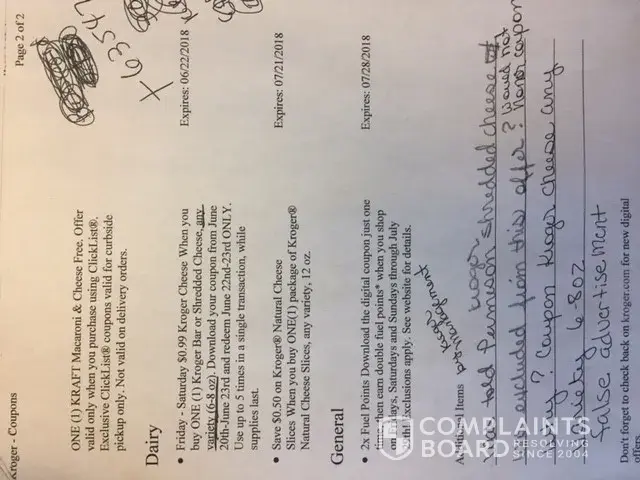 Kroger - Coupons
Page 2 of 2
X 63547
ONE (1) KRAFT Macaroni & Cheese Free. Offer
valid only when you purchase using ClickList®.
Exclusive ClickList® coupons valid for curbside
pickup only. Not valid on delivery orders.
Dairy
• Friday - Saturday $0.99 Kroger Cheese When you
buy ONE (1) Kroger Bar or Shredded Cheese, any
variety (6-8 oz). Download your coupon from June
20th-June 23rd and redeem June 22nd-23rd ONLY.
Use up to 5 times in a single transaction, while
supplies last.
Expires: 06/22/2018
• Save $0.50 on Kroger® Natural Cheese
Slices When you buy ONE(1) package of Kroger®
Natural Cheese Slices, any variety, 12 oz.
Expires: 07/21/2018
General
• 2x Fuel Points Download the digital coupon just one
time, then earn double fuel points* when you shop
on Fridays, Saturdays and Sundays through July
28th! Exclusions apply. See website for details.
Expires: 07/28/2018
Additional Items
Kroger
management
Kroger
told Parmesan shredded cheese
excluded from this offer? Would not
Why? Coupon Kroger cheese any
honor coupon
variety 6-8oz
false advertisement
Don't forget to check back on kroger.com for new digital
offers.
COMPLAINTS
BOARD
RESOLVING
SINCE 2004